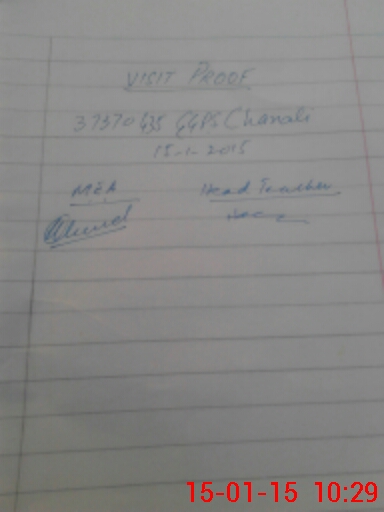 VISIT PROOF
37370435 GGPS Chanali
15-1-2015
MEA Head Teacher
15-01-15 10:29